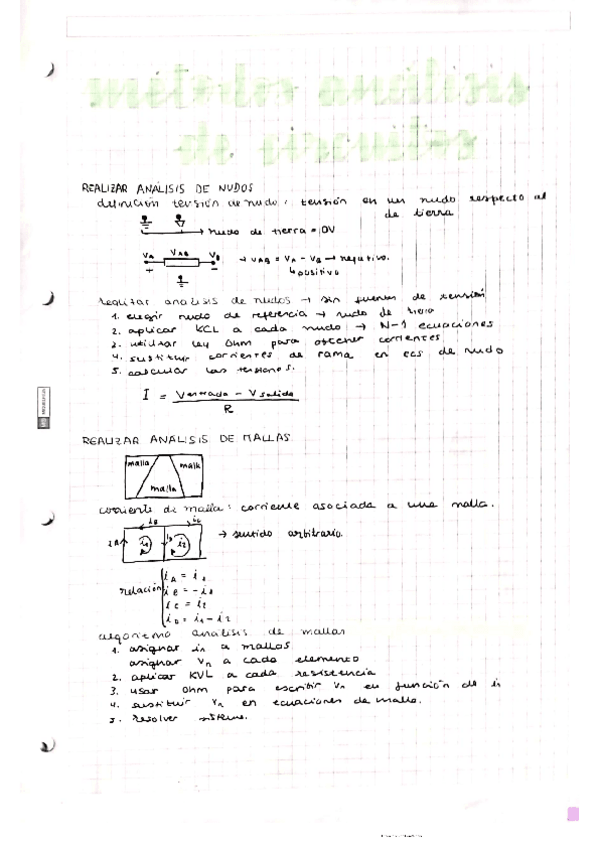 REALIZAR ANÁLISIS DE NUDOS
definición tensión de nudo: tensión en un nudo respecto al
de tierra
→ nudo de tierra = 0V
VA VAB VB
+ -
→ VAB = VA - VB → negativo.
↳ positivo
realizar analisis de nudos → sin fuentes de tensión
1. elegir nudo de referencia → nudo de tierra
2. aplicar KCL a cada nudo → N-1 ecuaciones
3. utilizar ley Ohm para obtener corrientes
4. sustituir corrientes de rama en ecs de nudo
5. calcular las tensiones.
I = Ventrada - Vsalida
R
REALIZAR ANALISIS DE MALLAS
malla malla
malla
corriente de malla: corriente asociada a una malla.
i1 i2
→ sentido arbitrario.
relación
iB = -i1
iC = i2
iD = i1 - i2
algoritmo analisis de mallas
1. asignar in a mallas
asignar Vn a cada elemento
2. aplicar KVL a cada resistencia
3. usar ohm para escribir Vn en función de in
4. sustituir Vn en ecuaciones de malla.
5. resolver sistema.